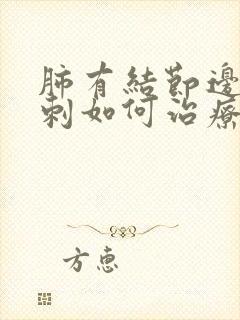 肺有結節邊
刺如何治療
方惠